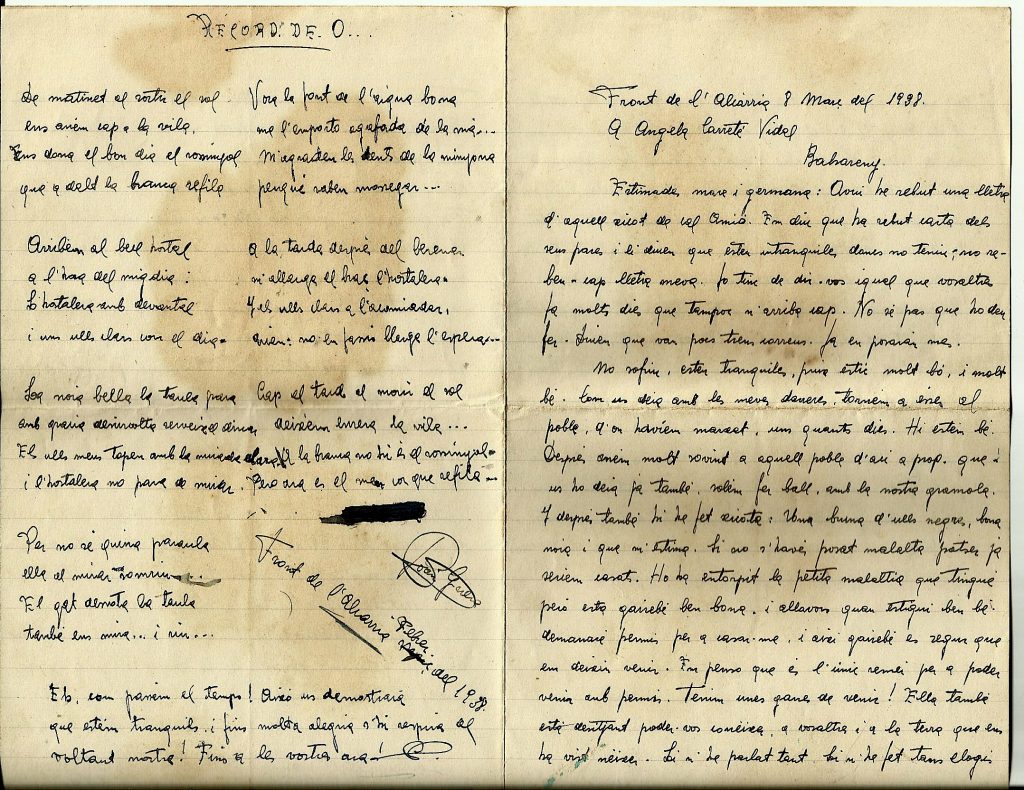 RECORD DE O...
De matinet al sortir el sol
ens anem cap a la vila,
Ens dona el bon dia el rossinyol
que a dalt la branca refila
Arribem al bell hostal
a l'hora del migdia:
L'hostalera amb devantal
i uns ulls clars com el dia.
La noia bella la taula para
amb gracia desinvolta serveix el dinar
Els ulls meus topen amb la mirada clara
i l'hostalera no para de mirar.
Per no sé quina paraula
ella al mirar somriu...
El gat dessota la taula
també ens mira... i riu...
Vora la font de l'aigua bona
me l'emporto agafada de la mà...
M'agraden les dents de la minyona
perquè saben mossegar...
A la tarda després del berenar
m'allarga el braç l'hostalera.
I els ulls clars a l'acomiadar,
diuen: no em facis llarga l'espera...
Cap al tard al morir el sol
deixem enrera la vila...
A la branca no hi és el rossinyol.
Pero ara es el meu cor que refila...
Front de l'Aliarria
Febrer del 1938
Eh, com passem el temps! Això us demostrarà
que estem tranquils, i fins molta alegria s'hi respira al
voltant nostre! Fins a la vostra ara!
Front de l'Aliarria 8 Març del 1938.
A Angela Carreté Vidal
Bahareny.
Estimades mare i germana: Avui he rebut una lletra
d'aquell xicot de cal Amió. Em diu que ha rebut carta dels
seus pares i li diuen que esteu intranquiles doncs no teniu, no re-
beu cap lletra meva. Jo tinc de dir-vos igual que vosaltres
fa molts dies que tampoc m'arriba cap. No sé pas que ho deu
fer. Diuen que van pocs trens correus. Ja en posaran mes.
No sofriu, esteu tranquiles, puix estic molt bo, i molt
bé. Com us deia amb les meves darreres, tornem a ésser al
poble, d'on haviem marxat, uns quants dies. Hi estem bé.
Despres anem molt sovint a aquell poble d'aci a prop. que
us ho deia ja també, solem fer ball, amb la nostra gramola.
I després també hi he fet xicota: Una bruna d'ulls negres, bona
noia i que m'estima. Si no s'havés posat malalta potser ja
seriem casats. Ho ha entorpit la petita malaltia que tingué
però està gairebé ben bona, i allavors quan estigui ben bé
demanaré permis per a casar-me, i així gairebé es segur que
em deixin venir. Em penso que és l'únic remei per a poder
venir amb permis. Tenim unes ganes de venir! Ella també
està desitjant poder-vos conèixer, a vosaltres i a la terra que em
ha vist néixer. Li n'he parlat tant, li n'he fet tans elogis